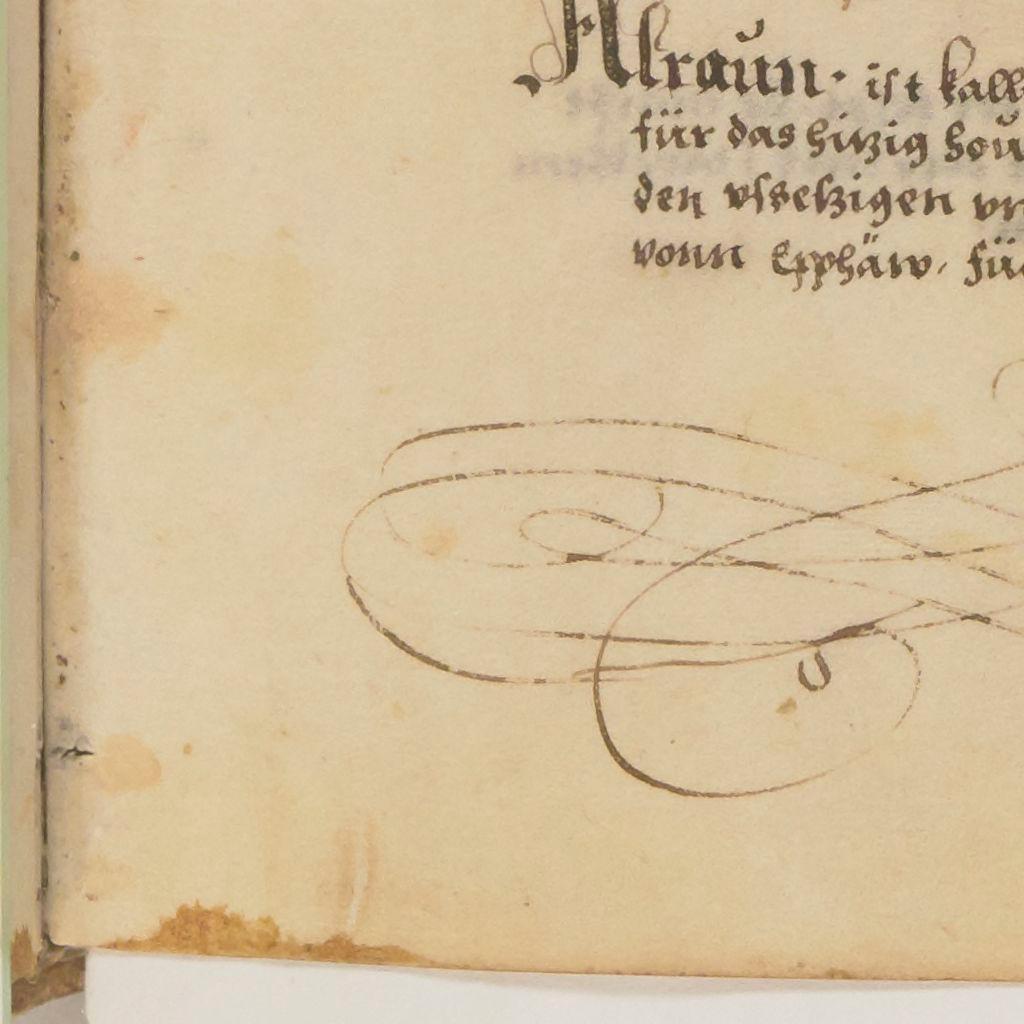 Alraun · ist kall
für das hitzig hou
den vssetzigen vn
vonn Epphäw. für